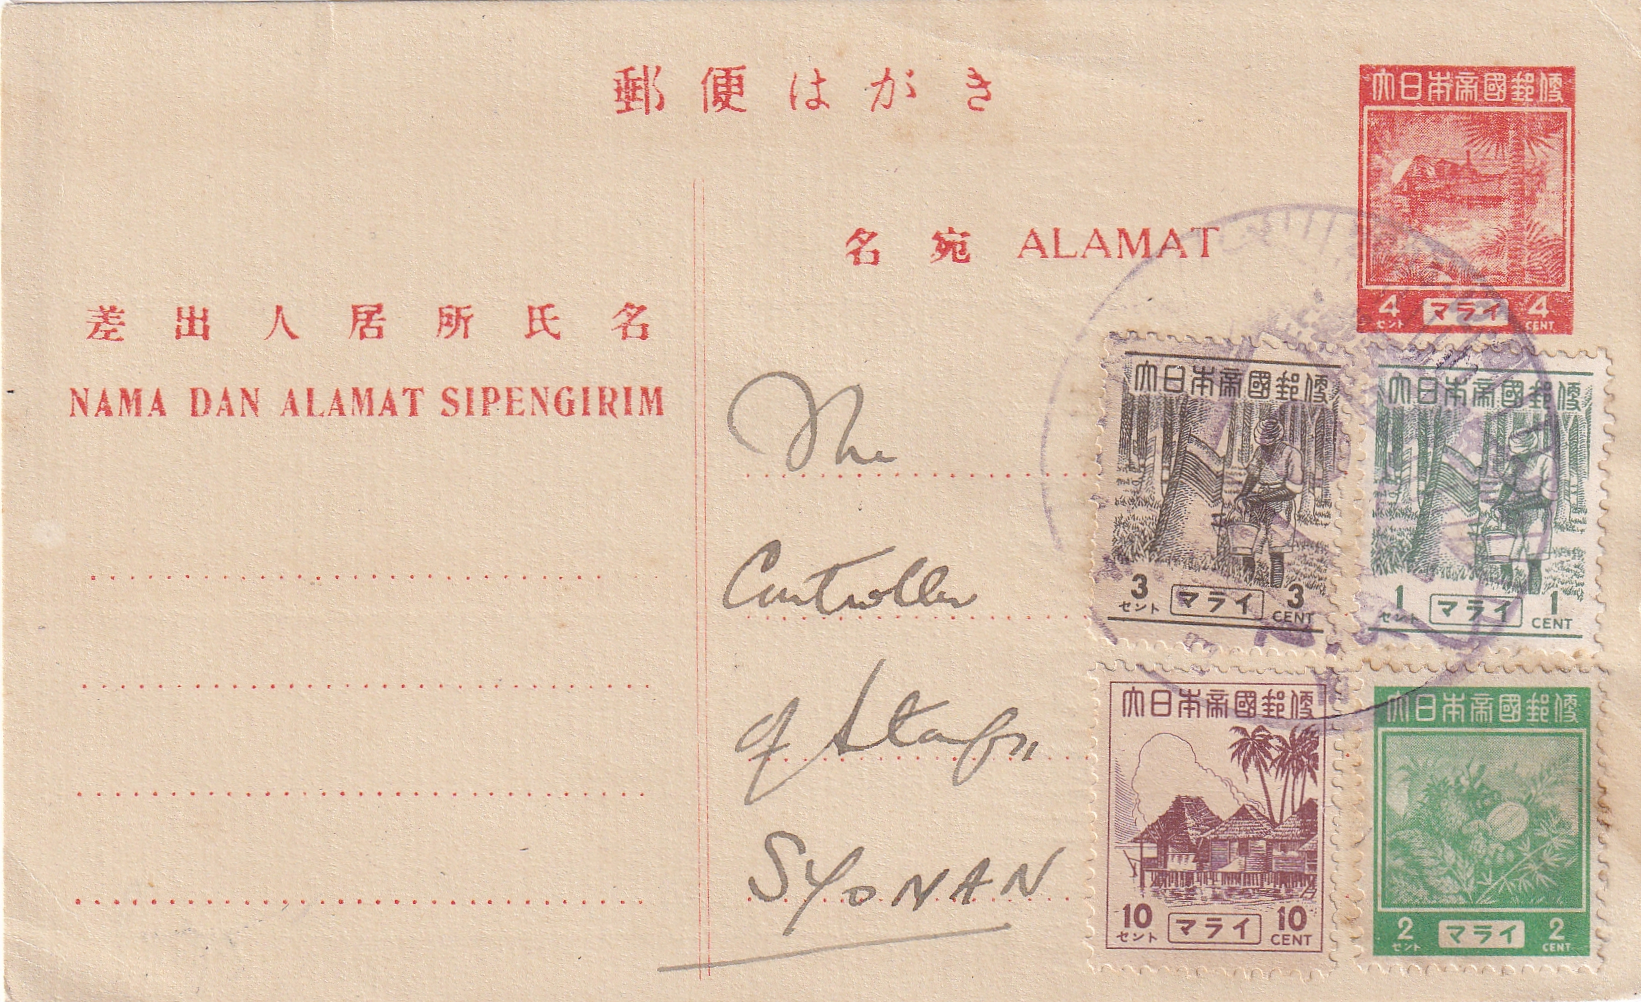 郵便はがき
大日本帝國郵便
4 マライ 4
セント CENT
名宛 ALAMAT
差出人居所氏名
NAMA DAN ALAMAT SIPENGIRIM
The
Controller
of Stamps
SYONAN
大日本帝國郵便
3 マライ 3
セント CENT
大日本帝國郵便
1 マライ 1
セント CENT
大日本帝國郵便
10 マライ 10
セント CENT
大日本帝國郵便
2 マライ 2
セント CENT